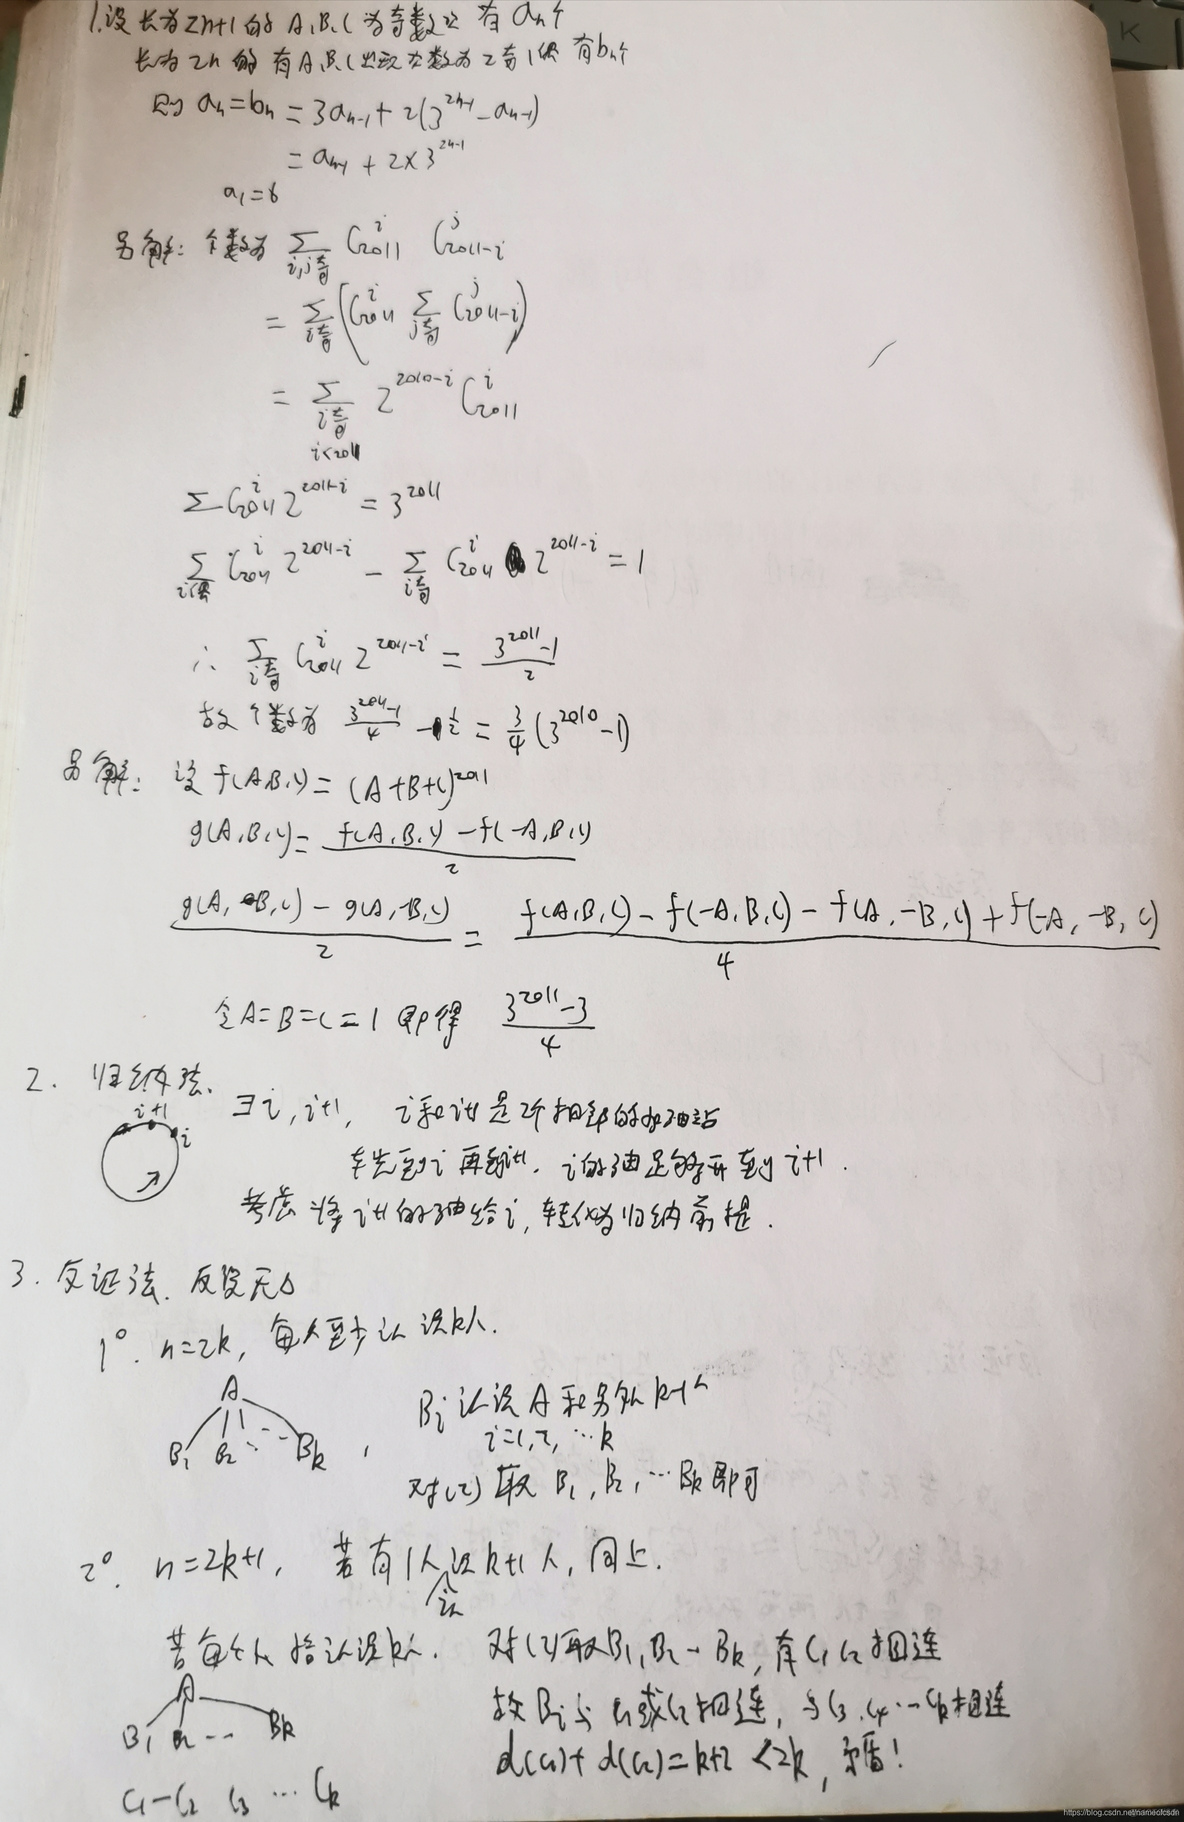 1.设长为2n+1的A,B,C为奇数次有aₙ个
长为2n的有A,B,C出现次数为2奇1偶有bₙ个
则aₙ=bₙ=3aₙ₋₁+2(3^{2n-1}-aₙ₋₁)
=aₙ₋₁+2×3^{2n-1}
a₁=6
另解:个数为 ∑_{i,j奇} C_{2011}^{i} C_{2011-i}^{j}
=∑_{i奇}(C_{2011}^{i} ∑_{j奇} C_{2011-i}^{j})
=∑_{i奇 i<2011} 2^{2010-i} C_{2011}^{i}
∑C_{2011}^{i} 2^{2011-i}=3^{2011}
∑_{i偶} C_{2011}^{i} 2^{2011-i} - ∑_{i奇} C_{2011}^{i} 2^{2011-i}=1
∴ ∑_{i奇} C_{2011}^{i} 2^{2011-i} = (3^{2011}-1)/2
故个数为 (3^{2011}-1)/4 - 1/2 = 3/4(3^{2010}-1)
另解:设f(A,B,C)=(A+B+C)^{2011}
g(A,B,C)=(f(A,B,C)-f(-A,B,C))/2
(g(A,B,C)-g(A,-B,C))/2 = (f(A,B,C)-f(-A,B,C)-f(A,-B,C)+f(-A,-B,C))/4
令A=B=C=1即得 (3^{2011}-3)/4
2. 归纳法.
i+1
i
∃i,i+1, i和i+1是2个相邻的加油站
车先到i再到i+1. i的油足够开到i+1.
考虑将i+1的油给i,转化为归纳前提.
3.反证法.反设无△
1°. n=2k,每人至少认识k人.
A
B₁ B₂ Bk ,
Bᵢ认识A和另外k-1人
i=1,2,…k
对(2)取B₁,B₂,…Bk即可
2°. n=2k+1, 若有1人认识k+1人,同上.
若每个人恰认识k人.
A
B₁ B₂ … Bk
C₁-C₂ C₃ … Ck
对(2)取B₁,B₂…Bk,有C₁C₂相连
故Bᵢ与C₁或C₂相连,与C₃,C₄…Ck相连
d(C₁)+d(C₂)=k+2<2k,矛盾!
K
https://blog.csdn.net/nameofcsdn